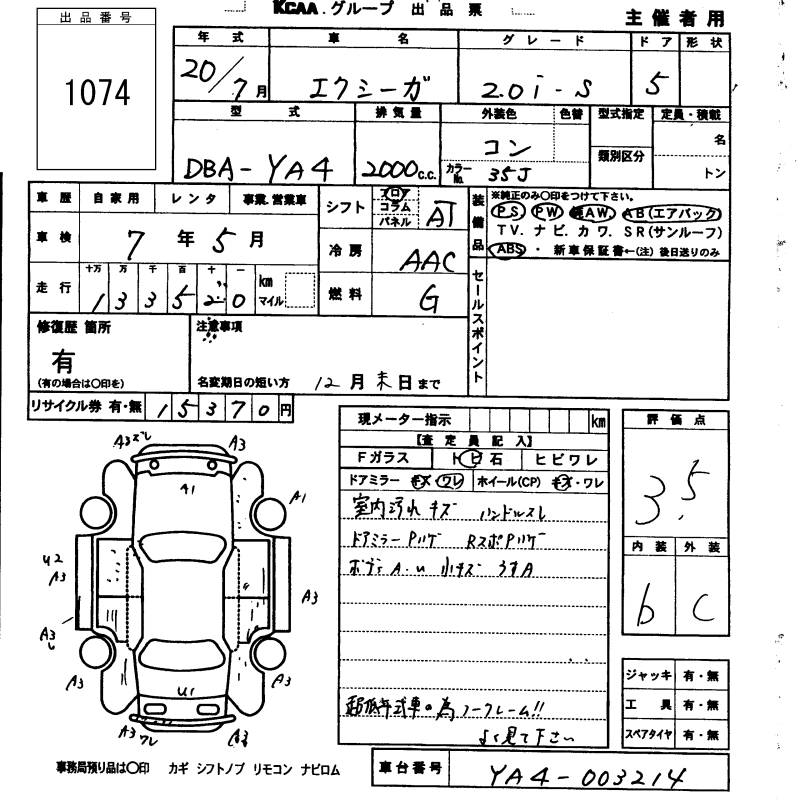 KCAA.グループ 出品票
主催者用
出品番号
1074
年式 車名 グレード ドア 形状
20/7月 エクシーガ 2.0i-S 5
型式 排気量 外装色 色替 型式指定 定員・積載
DBA-YA4 2000c.c. コン 類別区分 名
カラーNo. 35J トン
車歴 自家用 レンタ 事業・営業車
車検 7年5月
走行 十万 万 千 百 十 一
133520 km マイル
シフト フロ コラム パネル AT
冷房 AAC
燃料 G
装備品 ※純正のみ○印をつけて下さい。
PS PW 純AW AB(エアバック)
TV. ナビ. カワ. SR(サンルーフ)
ABS ・ 新車保証書←(注) 後日送りのみ
セールスポイント
修復歴 箇所
有
(有の場合は○印を)
注意事項
名変期日の短い方 12月末日まで
リサイクル券 有・無 15370円
現メーター指示 km
【査定員記入】
Fガラス トビ石 ヒビワレ
ドアミラー キズ ワレ ホイール(CP) キズ・ワレ
室内汚れキズ ハンドルスレ
ドアミラーPハゲ RスポPハゲ
ボディA.u 小キズ うすA
超低年式車の為ノークレーム!!
よく見て下さい
評価点
3.5
内装 外装
b C
ジャッキ 有・無
工具 有・無
スペアタイヤ 有・無
A3ズレ A3
A1
A1
U2
A3
A3
A3
A3 A3
U1
A3 ワレ A3
事務局預り品は○印 カギ シフトノブ リモコン ナビロム
車台番号 YA4-003214